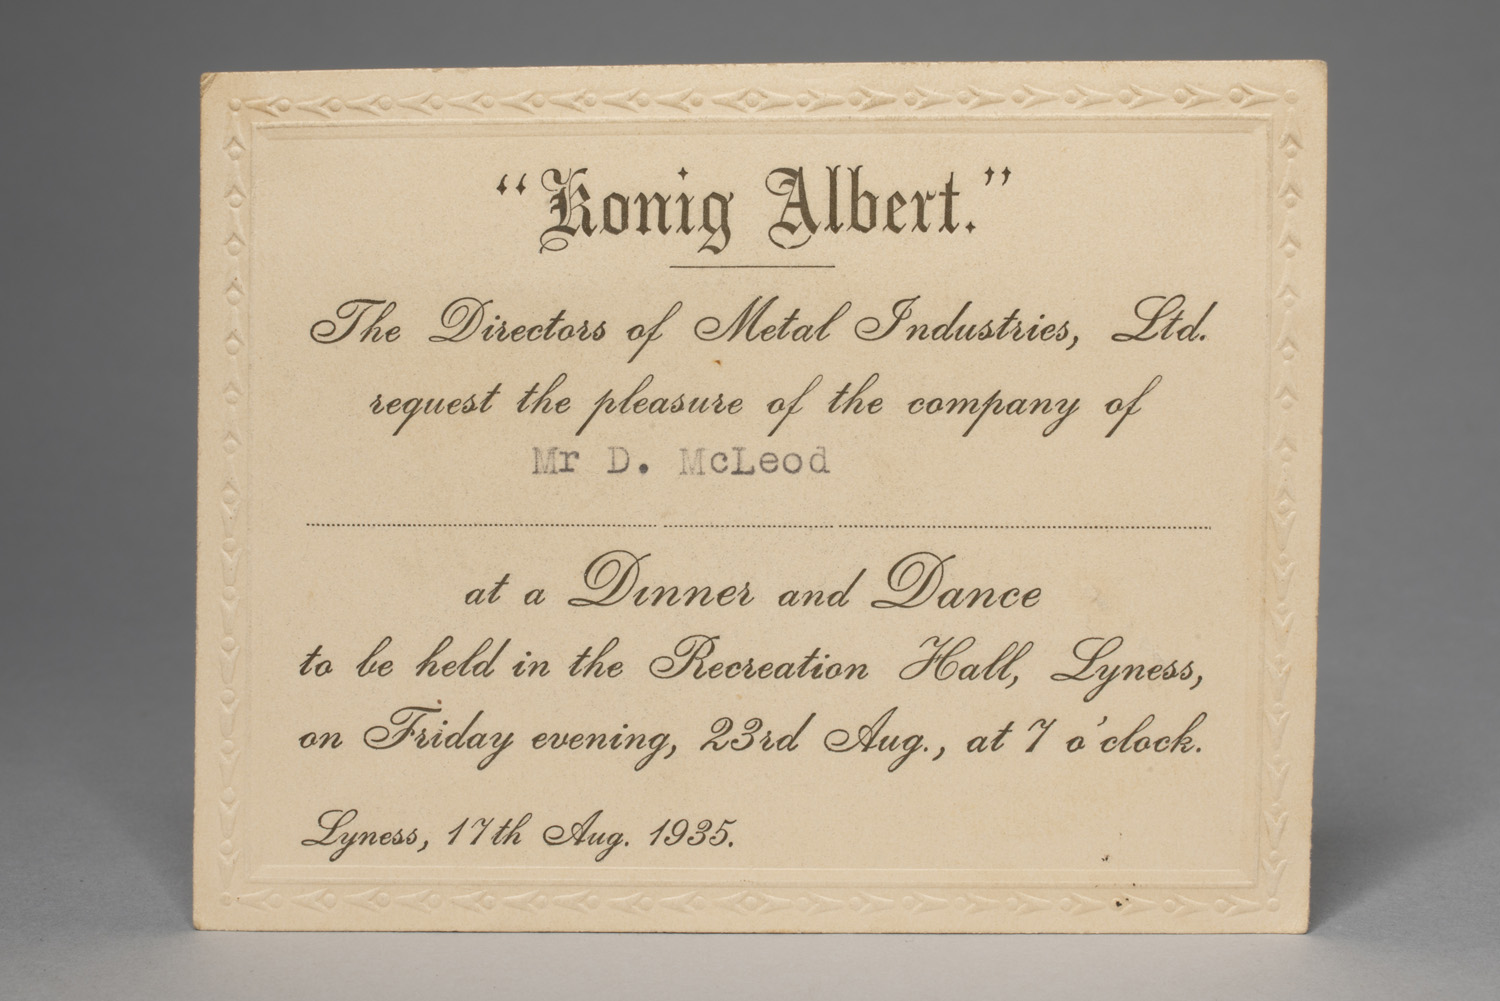 “Konig Albert.”
The Directors of Metal Industries, Ltd.
request the pleasure of the company of
Mr D. McLeod
at a Dinner and Dance
to be held in the Recreation Hall, Lyness,
on Friday evening, 23rd Aug., at 7 o'clock.
Lyness, 17th Aug. 1935.